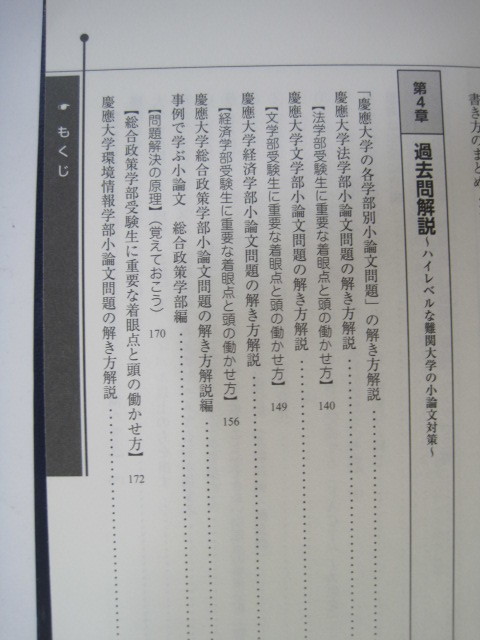 書き方のまとめ
第4章 過去問解説～ハイレベルな難関大学の小論文対策～
「慶應大学の各学部別小論文問題」の解き方解説
慶應大学法学部小論文問題の解き方解説
【法学部受験生に重要な着眼点と頭の働かせ方】 140
慶應大学文学部小論文問題の解き方解説
【文学部受験生に重要な着眼点と頭の働かせ方】 149
慶應大学経済学部小論文問題の解き方解説
【経済学部受験生に重要な着眼点と頭の働かせ方】 156
慶應大学総合政策学部小論文問題の解き方解説編
事例で学ぶ小論文 総合政策学部編
【問題解決の原理】（覚えておこう） 170
【総合政策学部受験生に重要な着眼点と頭の働かせ方】 172
慶應大学環境情報学部小論文問題の解き方解説
もくじ